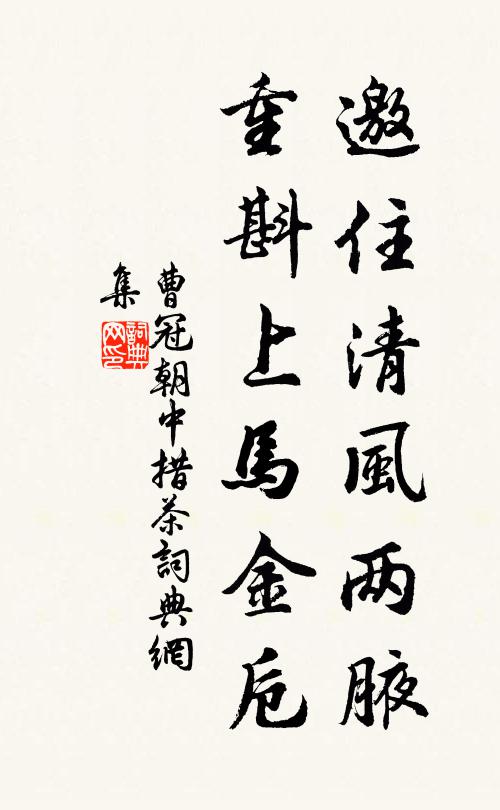 邀住清風两腋
重斟上馬金卮
曹冠朝中措茶詞典網
集
詞典网印